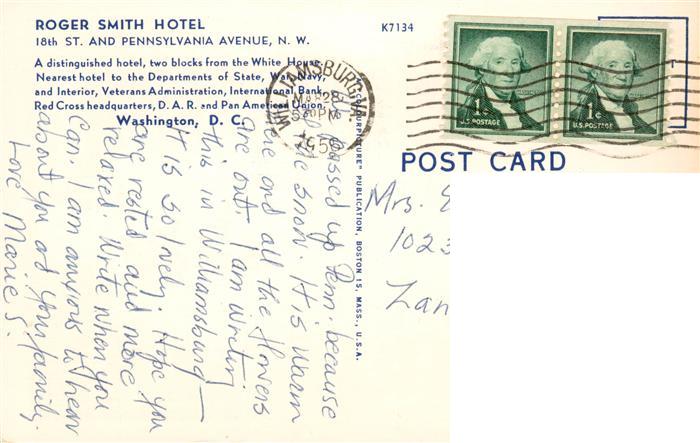 ROGER SMITH HOTEL
18th ST. AND PENNSYLVANIA AVENUE, N. W.
A distinguished hotel, two blocks from the White House.
Nearest hotel to the Departments of State, War, Navy,
and Interior, Veterans Administration, International Bank,
Red Cross headquarters, D. A. R. and Pan American Union.
Washington, D. C.
K7134
WILLIAMSBURG, VA.
MAR 28
PM
1¢
U.S. POSTAGE
1¢
U.S. POSTAGE
POST CARD
"COLOURPICTURE" PUBLICATION, BOSTON 15, MASS., U.S.A.
passed up Penn because
of the snow. It is warm
here and all the flowers
are out. I am writing
this in Williamsburg—
It is so lovely. Hope you
are rested and more
relaxed. Write when you
can. I am anxious to hear
about you and your family.
Love Marie S.
Mrs.